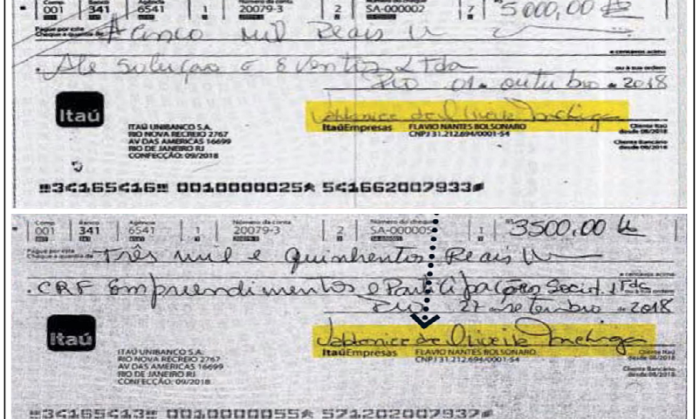 Comp Banco Agência Número da conta Número do cheque R$
001 341 6541 1 20079-3 2 SA-000002 7 5000,00
Pague por este
Cheque a quantia de Cinco mil Reais
e centavos acima
Ale Soluções e Eventos Ltda ou à sua ordem
Rio 01 de outubro de 2018
Itaú
ITAÚ UNIBANCO S.A.
RIO NOVA RECREIO 2767
AV DAS AMERICAS 16699
RIO DE JANEIRO RJ
CONFECÇÃO: 09/2018
ItaúEmpresas FLAVIO NANTES BOLSONARO
CNPJ 31.212.694/0001-54
Cliente Itaú
desde 08/2018
Cliente Bancário
desde 08/2018
34165416 0010000025 541662007933
Comp Banco Agência Número da conta Número do cheque R$
001 341 6541 1 20079-3 2 SA-000005 1 3500,00
Pague por este
Cheque a quantia de Três mil e quinhentos Reais
e centavos acima
CRF Empreendimentos e Participações Socid. Ltda
Rio 27 setembro 2018
Itaú
ITAÚ UNIBANCO S.A.
RIO NOVA RECREIO 2767
AV DAS AMERICAS 16699
RIO DE JANEIRO RJ
CONFECÇÃO: 09/2018
de Oliveira
ItaúEmpresas FLAVIO NANTES BOLSONARO
CNPJ 31.212.694/0001-54
Cliente Itaú
desde 08/2018
Cliente Bancário
desde 08/2018
34165413 0010000055 571202007937